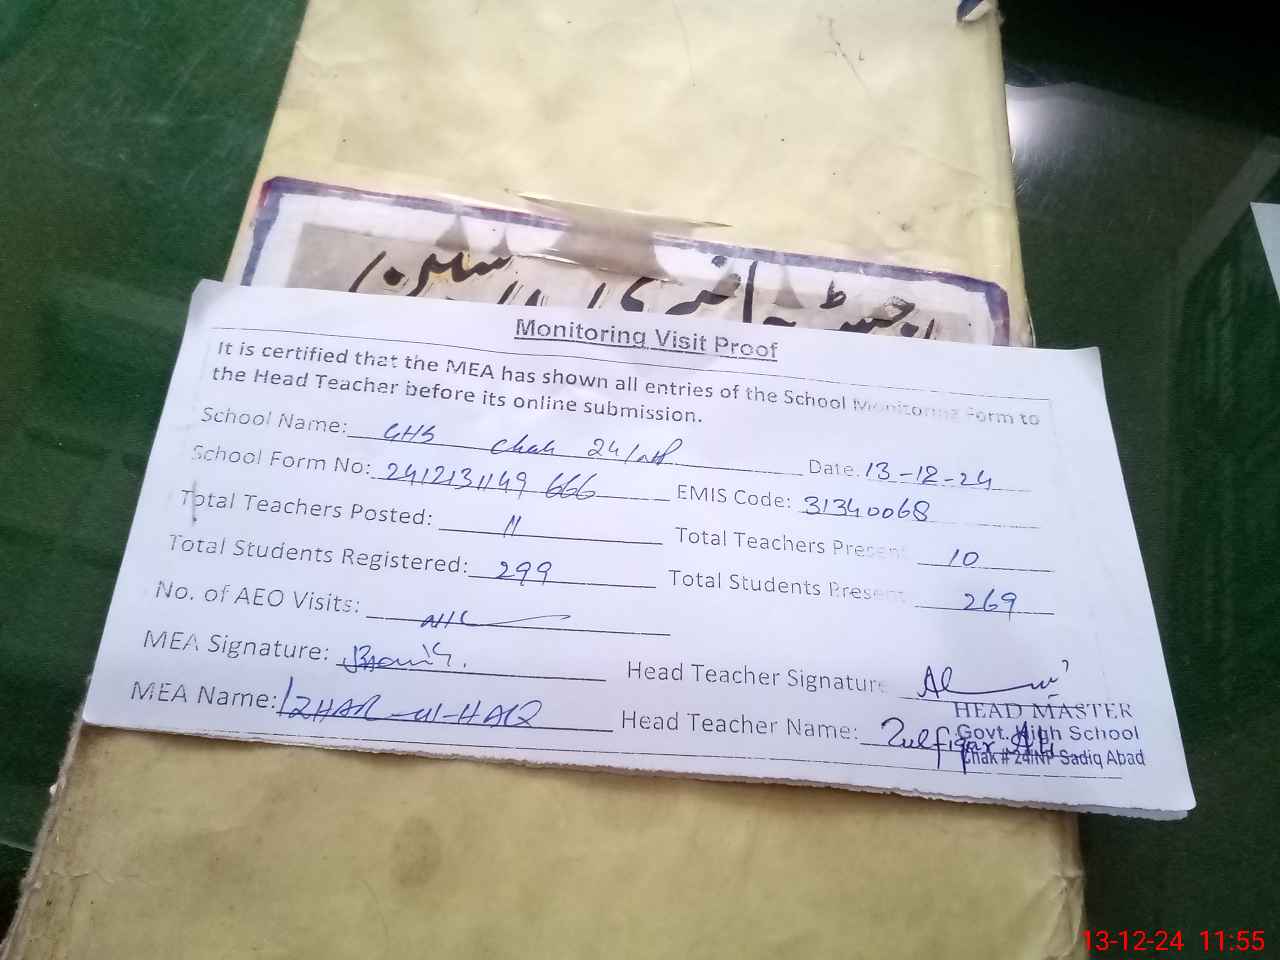 رجسٹر
Monitoring Visit Proof
It is certified that the MEA has shown all entries of the School Monitoring Form to
the Head Teacher before its online submission.
School Name: GHS Chak 24/NP Date. 13-12-24
School Form No: 2412131149 666 EMIS Code: 31340068
Total Teachers Posted: 11 Total Teachers Present 10
Total Students Registered: 299 Total Students Present 269
No. of AEO Visits: NIL
MEA Signature: Head Teacher Signature
MEA Name: IZHAR-ul-HAQ Head Teacher Name: Zulfiqar Ali
HEAD MASTER
Govt. High School
Chak # 24/NP Sadiq Abad
13-12-24 11:55